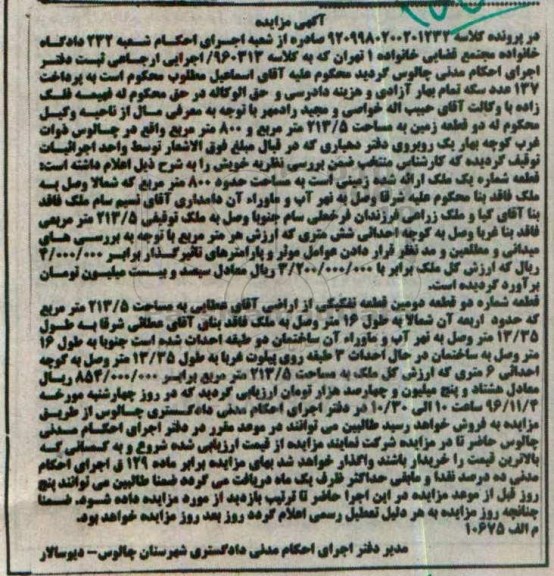 آگهی مزایده
در پرونده کلاسه ۹۲۰۹۹۸۰۲۰۰۲۰۱۲۳۲ صادره از شعبه اجرای احکام شعبه ۲۳۲ دادگاه
خانواده مجتمع قضایی خانواده ۱ تهران که به کلاسه ۹۶۰۳۱۳/ اجرایی ارجاعی ثبت دفتر
اجرای احکام مدنی چالوس گردید محکوم علیه آقای اسماعیل مطلوب محکوم است به پرداخت
۱۳۷ عدد سکه تمام بهار آزادی و هزینه دادرسی و حق الوکاله در حق محکوم له فهیمه فلک
زاده با وکالت آقای حبیب اله خواصی و مجید رادمهر با توجه به معرفی مال از ناحیه وکیل
محکوم له دو قطعه زمین به مساحت ۲۱۳/۵ متر مربع و ۸۰۰ متر مربع واقع در چالوس ذوات
غرب کوچه بهار یک روبروی دفتر دهیاری که در قبال مبلغ فوق الاشعار توسط واحد اجرائیات
توقیف گردیده که کارشناس منتخب ضمن بررسی نظریه خویش را به شرح ذیل اعلام داشته است:
قطعه شماره یک ملک ارائه شده زمینی است به مساحت حدود ۸۰۰ متر مربع که شمالا وصل به
ملک فاقد بنا محکوم علیه شرقا وصل به نهر آب و ماوراء آن دامداری آقای نسیم سام ملک فاقد
بنا آقای کیا و ملک زراعی فرزندان فرخعلی سام جنوبا وصل به ملک توقیفی ۲۱۳/۵ متر مربعی
فاقد بنا غربا وصل به کوچه احداثی شش متری که ارزش هر متر مربع با توجه به بررسی های
میدانی و مطلعین و مد نظر قرار دادن عوامل موثر و پارامترهای تاثیرگذار برابر ۴/۰۰۰/۰۰۰
ریال که ارزش کل ملک برابر با ۳/۲۰۰/۰۰۰/۰۰۰ ریال معادل سیصد و بیست میلیون تومان
برآورد گردیده است.
قطعه شماره دو قطعه دومین قطعه تفکیکی از اراضی آقای عطایی به مساحت ۲۱۳/۵ متر مربع
که حدود اربعه آن شمالا به طول ۱۶ متر وصل به ملک فاقد بنای آقای عطائی شرقا به طول
۱۳/۳۵ متر وصل به نهر آب و ماوراء آن ساختمان دو طبقه احداث شده است جنوبا به طول ۱۶
متر وصل به ساختمان در حال احداث ۳ طبقه روی پیلوت غربا به طول ۱۳/۳۵ متر وصل به کوچه
احداثی ۶ متری که ارزش کل ملک به مساحت ۲۱۳/۵ متر مربع برابر ۸۵۴/۰۰۰/۰۰۰ ریال
معادل هشتاد و پنج میلیون و چهارصد هزار تومان ارزیابی گردید که در روز چهارشنبه مورخه
۹۶/۱۱/۴ ساعت ۱۰ الی ۱۰/۳۰ در دفتر اجرای احکام مدنی دادگستری چالوس از طریق
مزایده به فروش خواهد رسید طالبین می توانند در موعد مقرر در دفتر اجرای احکام مدنی
چالوس حاضر تا در مزایده شرکت نمایند مزایده از قیمت ارزیابی شده شروع و به کسانی که
بالاترین قیمت را خریدار باشند واگذار خواهد شد بهای مزایده برابر ماده ۱۲۹ ق اجرای احکام
مدنی ده درصد نقدا و مابقی حداکثر ظرف یک ماه دریافت می گردد ضمنا طالبین می توانند پنج
روز قبل از موعد مزایده در این اجرا حاضر تا ترتیب بازدید از مورد مزایده داده شود. ضمنا
چنانچه روز مزایده به هر دلیل تعطیل رسمی اعلام گردد روز بعد روز مزایده خواهد بود.
م الف ۱۰۶۷۵
مدیر دفتر اجرای احکام مدنی دادگستری شهرستان چالوس- دیوسالار